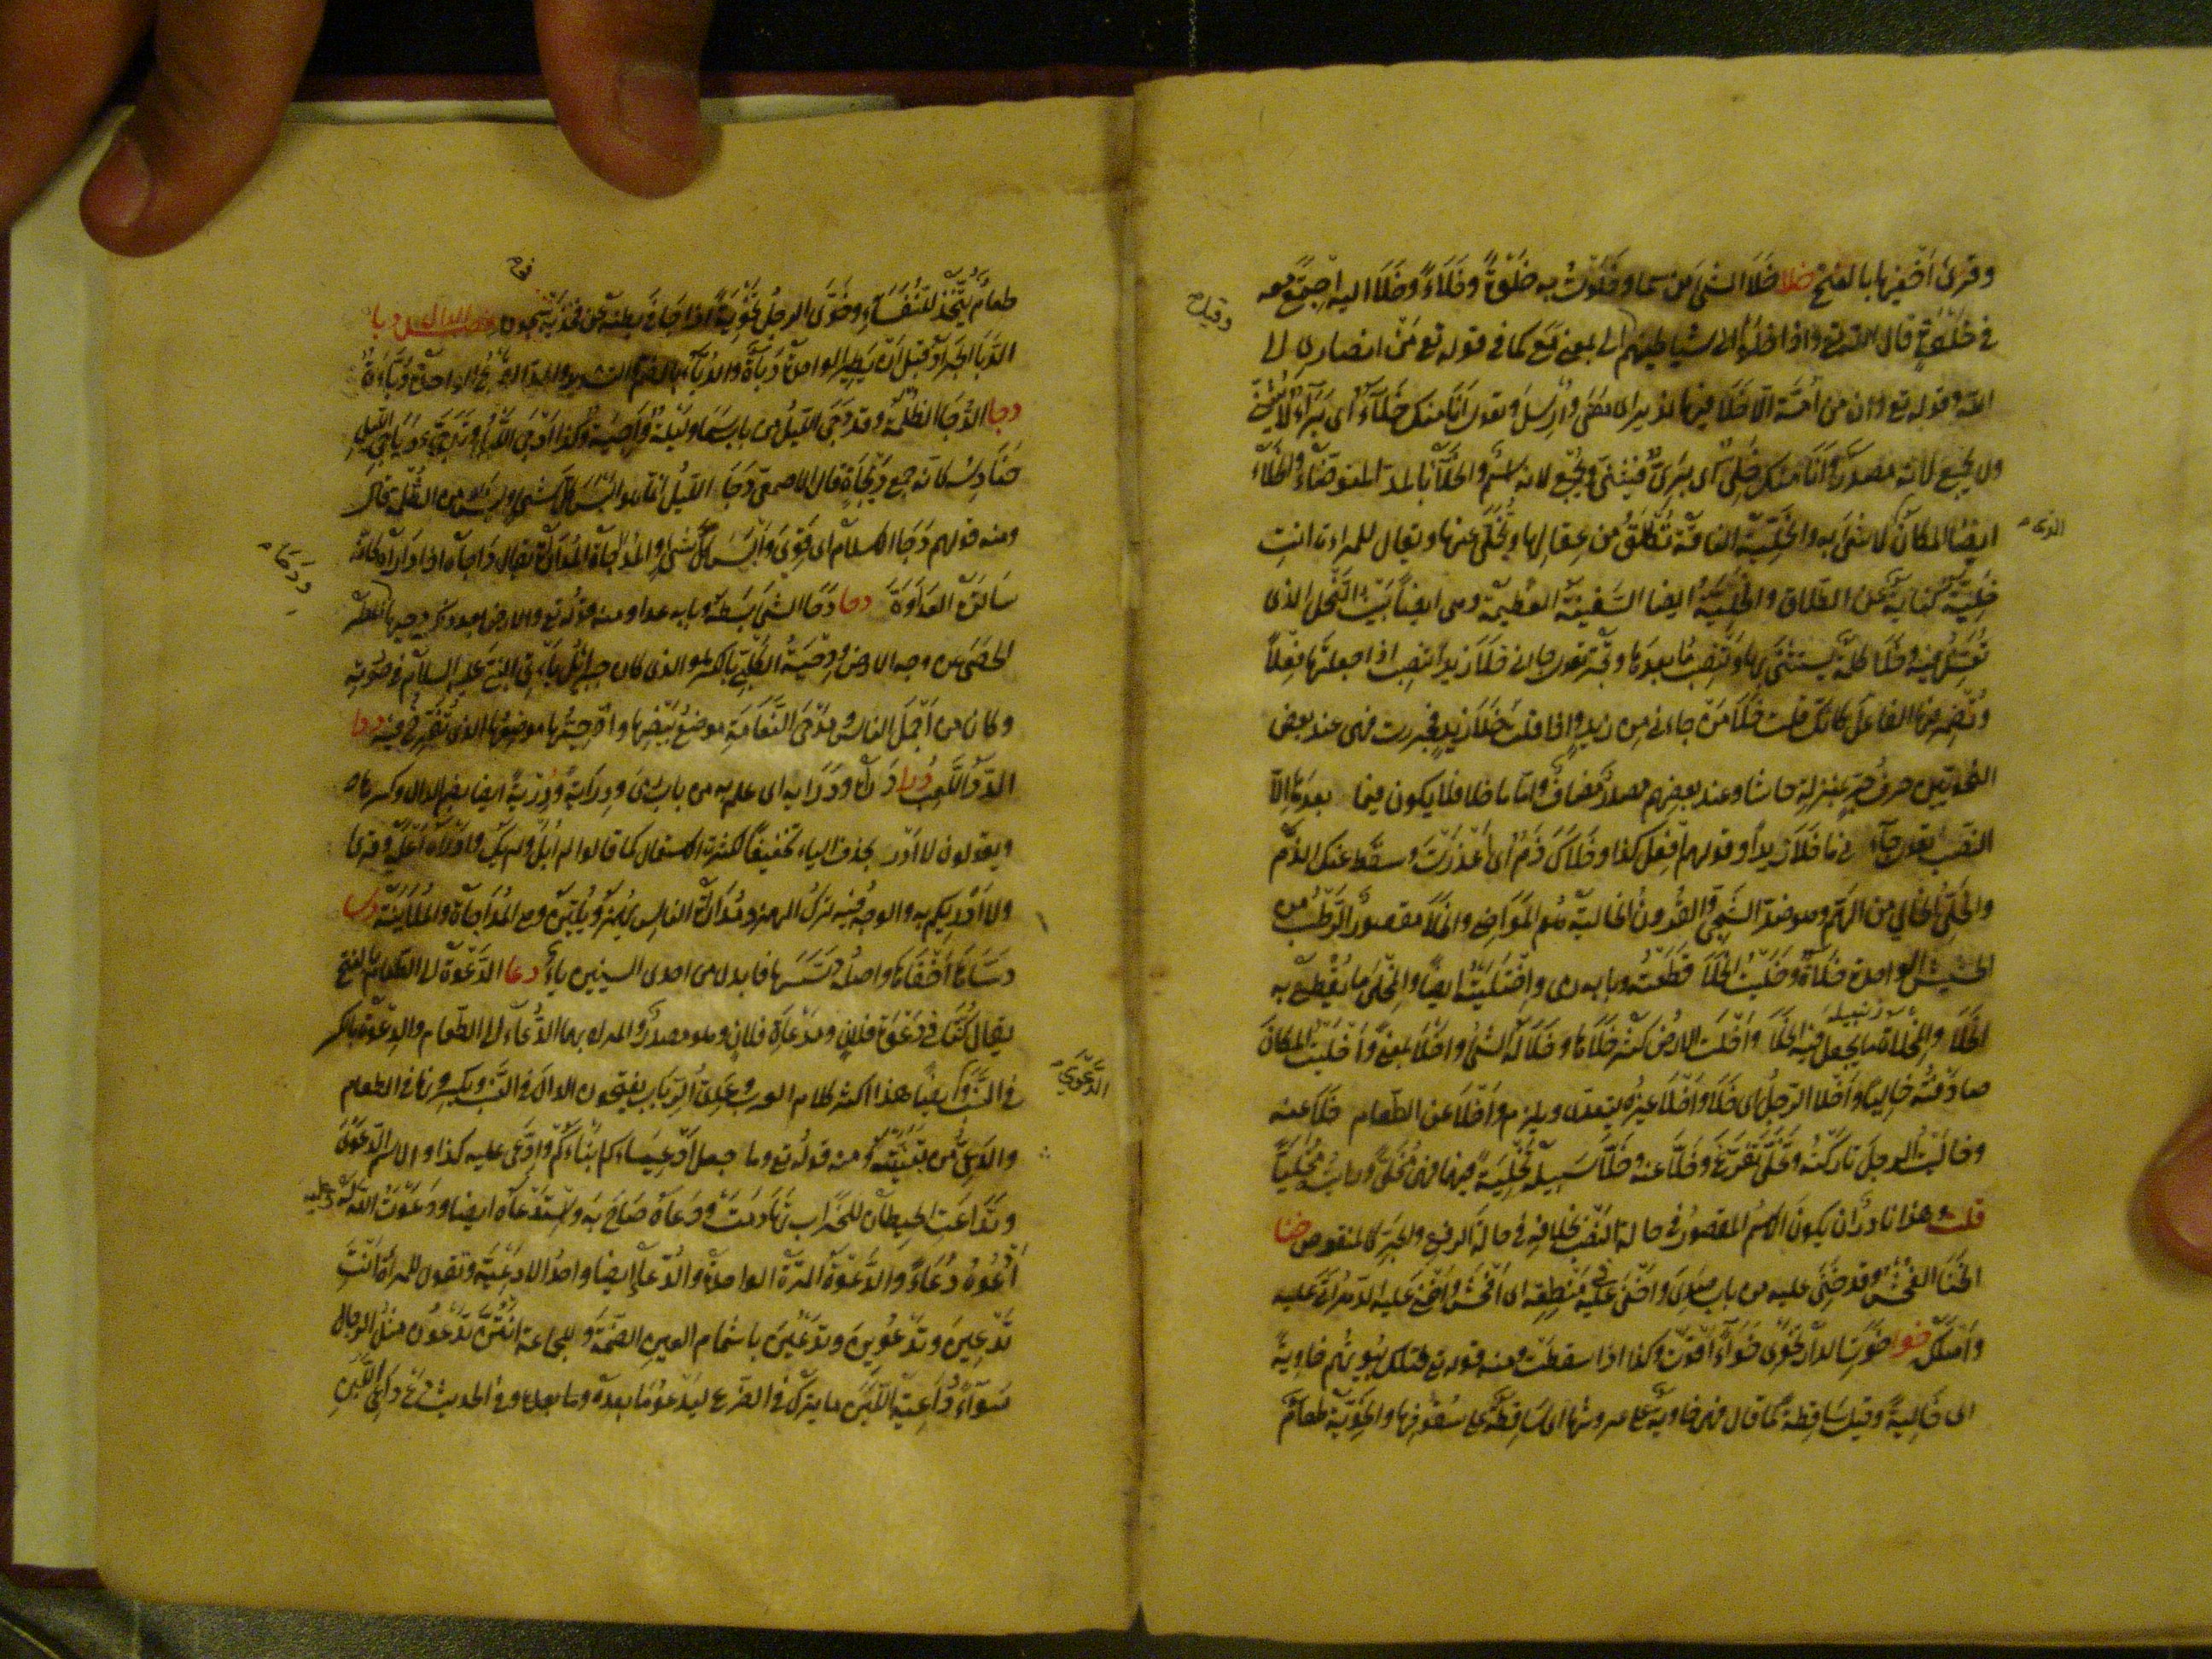 وقرئ أخفيها بالفتح خلا خَلَا الشئ من سما وخلوت به خَلْوَةً وخَلَاءً وخَلَا اليه اجتمع معه
في خلوة قال الله تع واذا خلوا الى شياطينهم الى بمعنى مع كما في قوله تع من انصارى الى
الله وقوله تع وان من امة الا خلا فيها نذير اى مضى وارسل وتقول انا منك خلاء اى براء لا يثنى
ولا يجمع لانه مصدر وانا منك خلى اى برى فيثنى ويجمع لانه اسم والخلاء بالمد المتوضأ والخلاء
ايضا المكان لا شئ به والخلية الناقة تطلق من عقالها ويخلى عنها ويقال للمراءة انت
خلية كناية عن الطلاق والخلية ايضا السفينة العظيمة وهى ايضا بيت النحل الذى
تعسل فيه وخلا كلمة يستثنى بها وتنصب ما بعدها وتجر تقول جاءنى خلا زيدا تنصب اذا جعلتها فعلا
وتضمر فيها الفاعل كانك قلت خلا من جاءنى من زيد واذا قلت خلا زيد فجررت فهى عند بعض
النحويين حرف جر بمنزلة حاشا وعند بعضهم مصدر مضاف واما ما خلا فلا يكون فيما بعدها الا
النصب تقول جاءنى ما خلا زيدا وقولهم افعل كذا وخلاك ذم اى اعذرت وسقط عنك الذم
والخلى الخالى من الهم وهو ضد الشجى والقرون الخالية هم المواضى والخلا مقصور الرطب من
الحشيش الواحدة خلاة وخليت الخلا قطعته وبابه رمى واختليته ايضا والمخلى ما يقطع به
الخلا والمخلاة ما يجعل فيه الخلا واخلت الارض كثر خلاها وخلا له الشئ واخلا بمعنى واخليت المكان
صادفته خاليا واخلا الرجل اى خلا واخلا غيره يتعدى ويلزم واخلا عن الطعام خلا عنه
وخاليت الرجل تاركته وتخلى تفرغ وخلا عنه وخلا سبيله تخلية فيهما فهى مخلى ورايته مخليا
قلت وهذا نادر ان يكون الاسم المقصور في حالة النصب بخلافه في حالة الرفع والجر كالمنقوص خنا
الخنا الفحش وقد خنى عليه من باب صدى واخنى عليه في منطقه اى افحش واخنى عليه الدهر اتى عليه
واهلكه خوا خوت الدار تخوى خواء اقوت وكذا اذا سقطت ومنه قوله تع فتلك بيوتهم خاوية
اى خالية وقيل ساقطة كما قال فهى خاوية على عروشها اى ساقطة على سقوفها والخوية طعام
طعام يتخذ للنفساء وخوى الرجل تخوية اذا جافى بطنه عن فخذيه في سجوده فصل الدال دبا
الدبا الجراد قبل ان يطير الواحدة دباة والدباء بالضم والتشديد والمد القرع الواحدة دباءة
دجا الدجا الظلمة وقد دجى الليل من باب سما وليلة داجية وكذا ادجى الليل وتدجى ودياجى الليل
حنادسه كانه جمع ديجاة قال الاصمعى دجا الليل انما هو البس كل شئ وليس من الظلمة قال
ومنه قولهم دجا الاسلام اى قوى والبس كل شئ والمداجاة المداراة يقال داجاه اذا داراه كانه
ساتره العداوة دحا دحا الشئ بسطه وبابه عدا ومنه قوله تع والارض بعد ذلك دحيها المطر
الحصى عن وجه الارض ودحية الكلبى بالكسر هو الذى كان جبرائيل ياءتى النبى عليه السلام في صورته
وكان من اجمل الناس ومدحى النعامة موضع بيضها وادحيتها موضعها الذى تفرخ فيه ددا
الدد اللعب درا دراه ودرا به اى علم به من باب رمى ودراية ودرية ايضا بضم الدال وكسرها
ويقولون لا ادر بحذف الياء تخفيفا لكثرة الاستعمال كما قالوا لم ابل ولم يك وادراه اعلمه وقرئ
ولا ادريكم به والوجه فيه ترك الهمز ومداراة الناس يهمز ويلين وهى المداجاة والملاينة دسا
دساها اخفاها واصله دسسها فابدل من احدى السينين ياء دعا الدعوة الى الطعام بالفتح
يقال كنا في دعوة فلان ومدعاة فلان وهو مصدر والمراد بهما الدعاء الى الطعام والدعوة بالكسر
في النسب والدعوى ايضا هذا اكثر كلام العرب وعدى الرباب يفتحون الدال في النسب ويكسرونها في الطعام
والدعى من تبنيته ومنه قوله تع وما جعل ادعياءكم ابناءكم وادعى عليه كذا والاسم الدعوى
وتداعت الحيطان للخراب تهادمت ودعاه صاح به واستدعاه ايضا ودعوت الله له وعليه
ادعوه دعاء والدعوة المرة الواحدة والدعاء ايضا واحد الادعية وتقول للمراة انت
تدعين وتدعوين وتدعين باشمام العين الضمة وللجماعة انتن تدعون مثل الرجال
سواء وداعية اللبن ما يترك في الضرع ليدعو ما بعده وما بعده وفي الحديث دع داعى اللبن